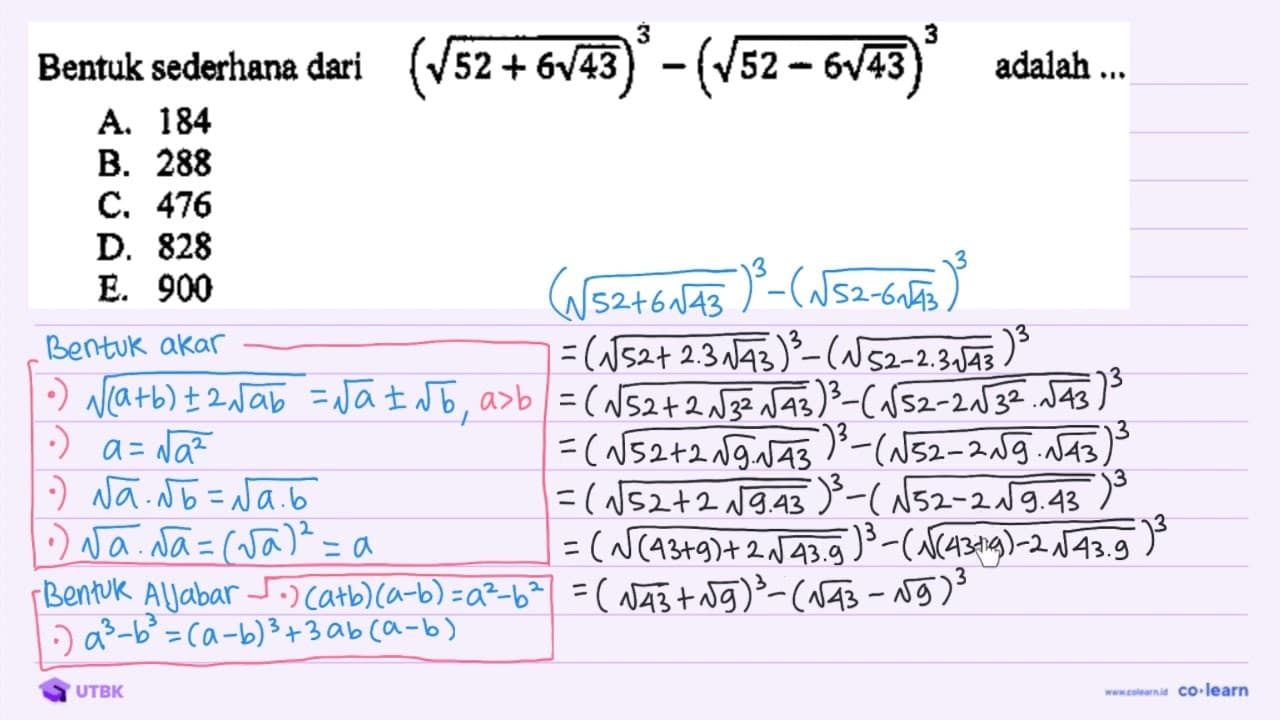 Bentuk sederhana dari (√(52 + 6√43))³ − (√(52 − 6√43))³ adalah ...
A. 184
B. 288
C. 476
D. 828
E. 900
(√(52+6√43))³−(√(52-6√43))³
Bentuk akar
•) √((a+b) ± 2√ab) = √a ± √b, a>b
•) a = √a²
•) √a . √b = √a.b
•) √a . √a = (√a)² = a
Bentuk Aljabar •) (a+b)(a-b) = a²-b²
•) a³-b³ = (a-b)³+3ab(a-b)
= (√(52+2.3√43))³−(√(52-2.3√43))³
= (√(52+2√3²√43))³−(√(52-2√3².√43))³
= (√(52+2√9.√43))³−(√(52-2√9.√43))³
= (√(52+2√9.43))³−(√(52-2√9.43))³
= (√((43+9)+2√43.9))³−(√((43+9)-2√43.9))³
= (√43+√9)³−(√43-√9)³
UTBK
www.colearn.id co•learn